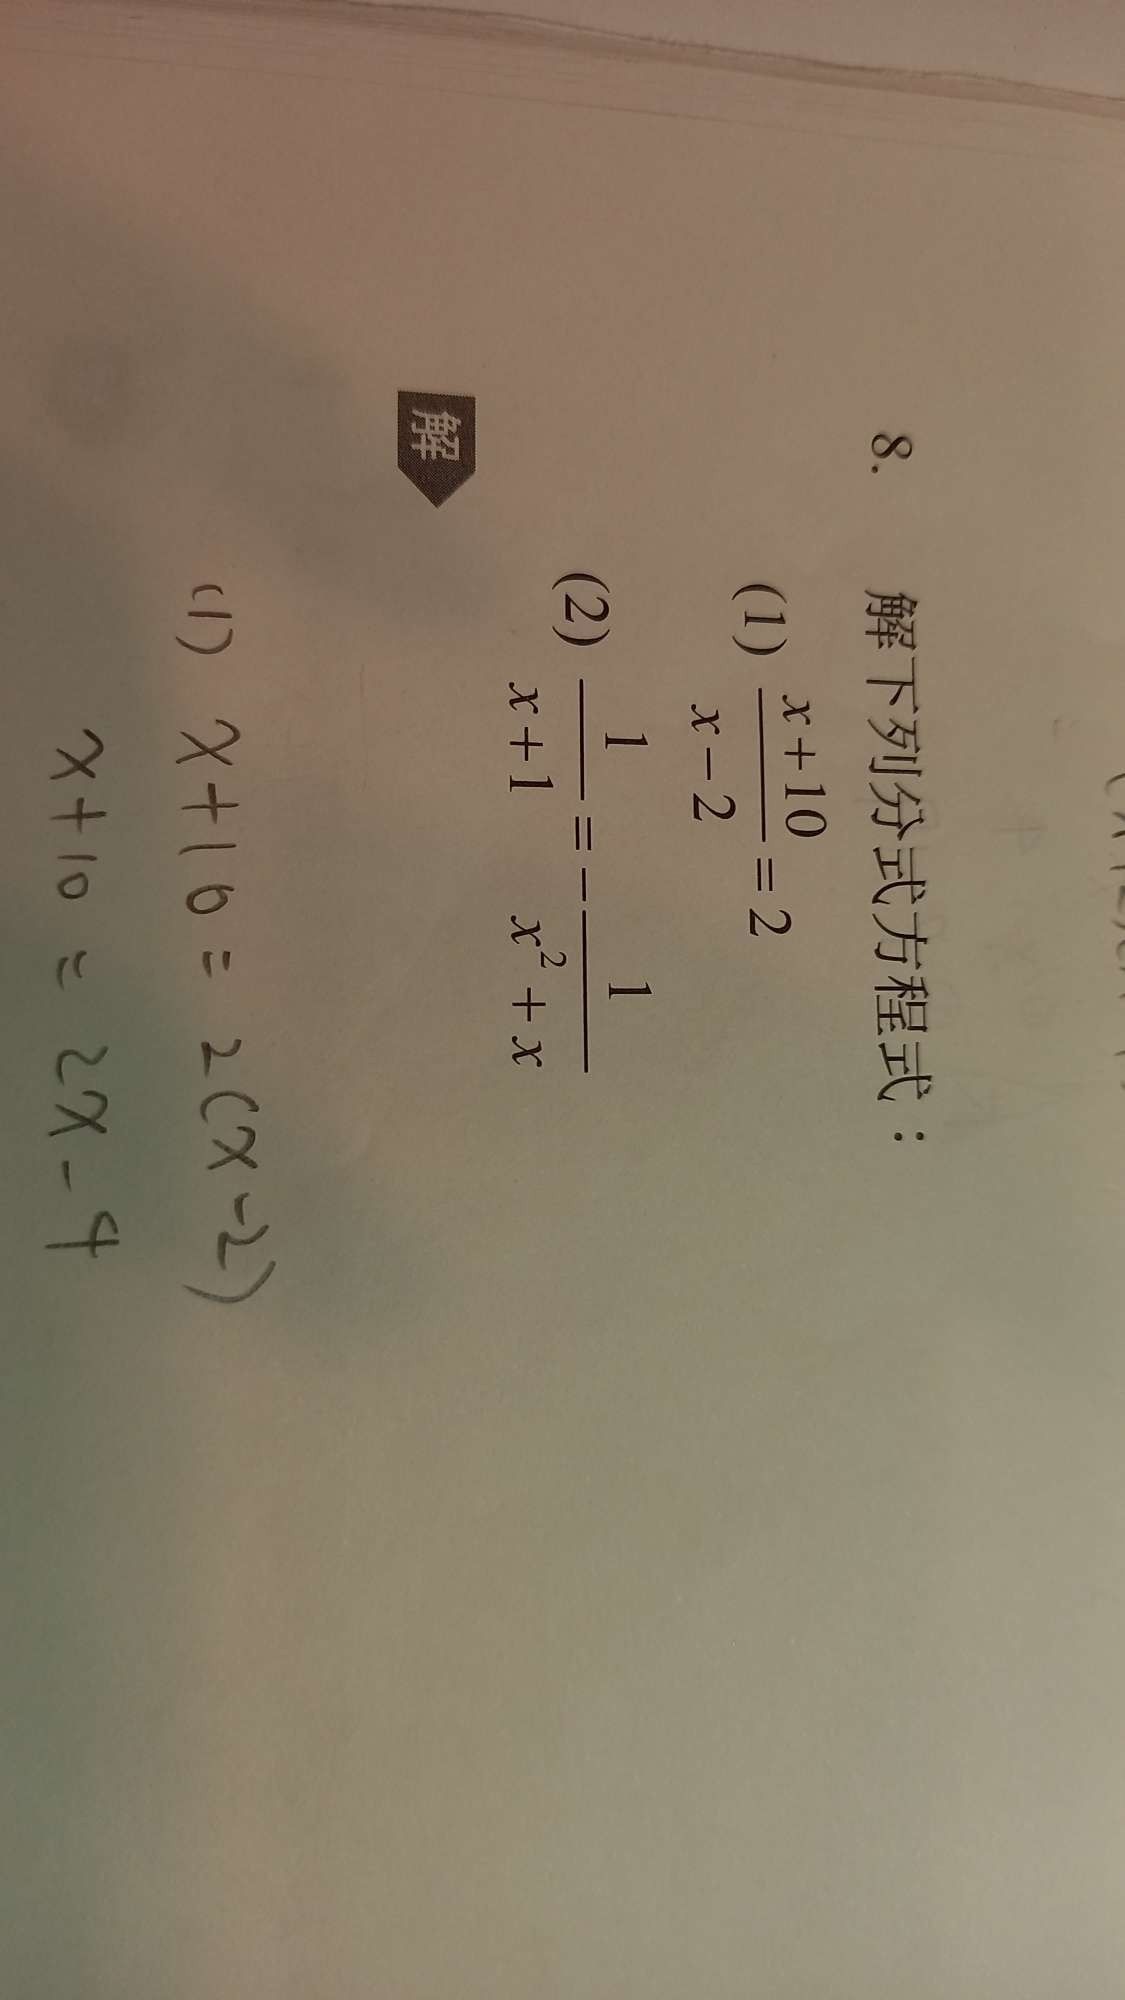 8. 解下列分式方程式：
(1) \frac{x+10}{x-2} = 2
(2) \frac{1}{x+1} = -\frac{1}{x^2+x}
解
(1) x+10 = 2(x-2)
x+10 = 2x-4